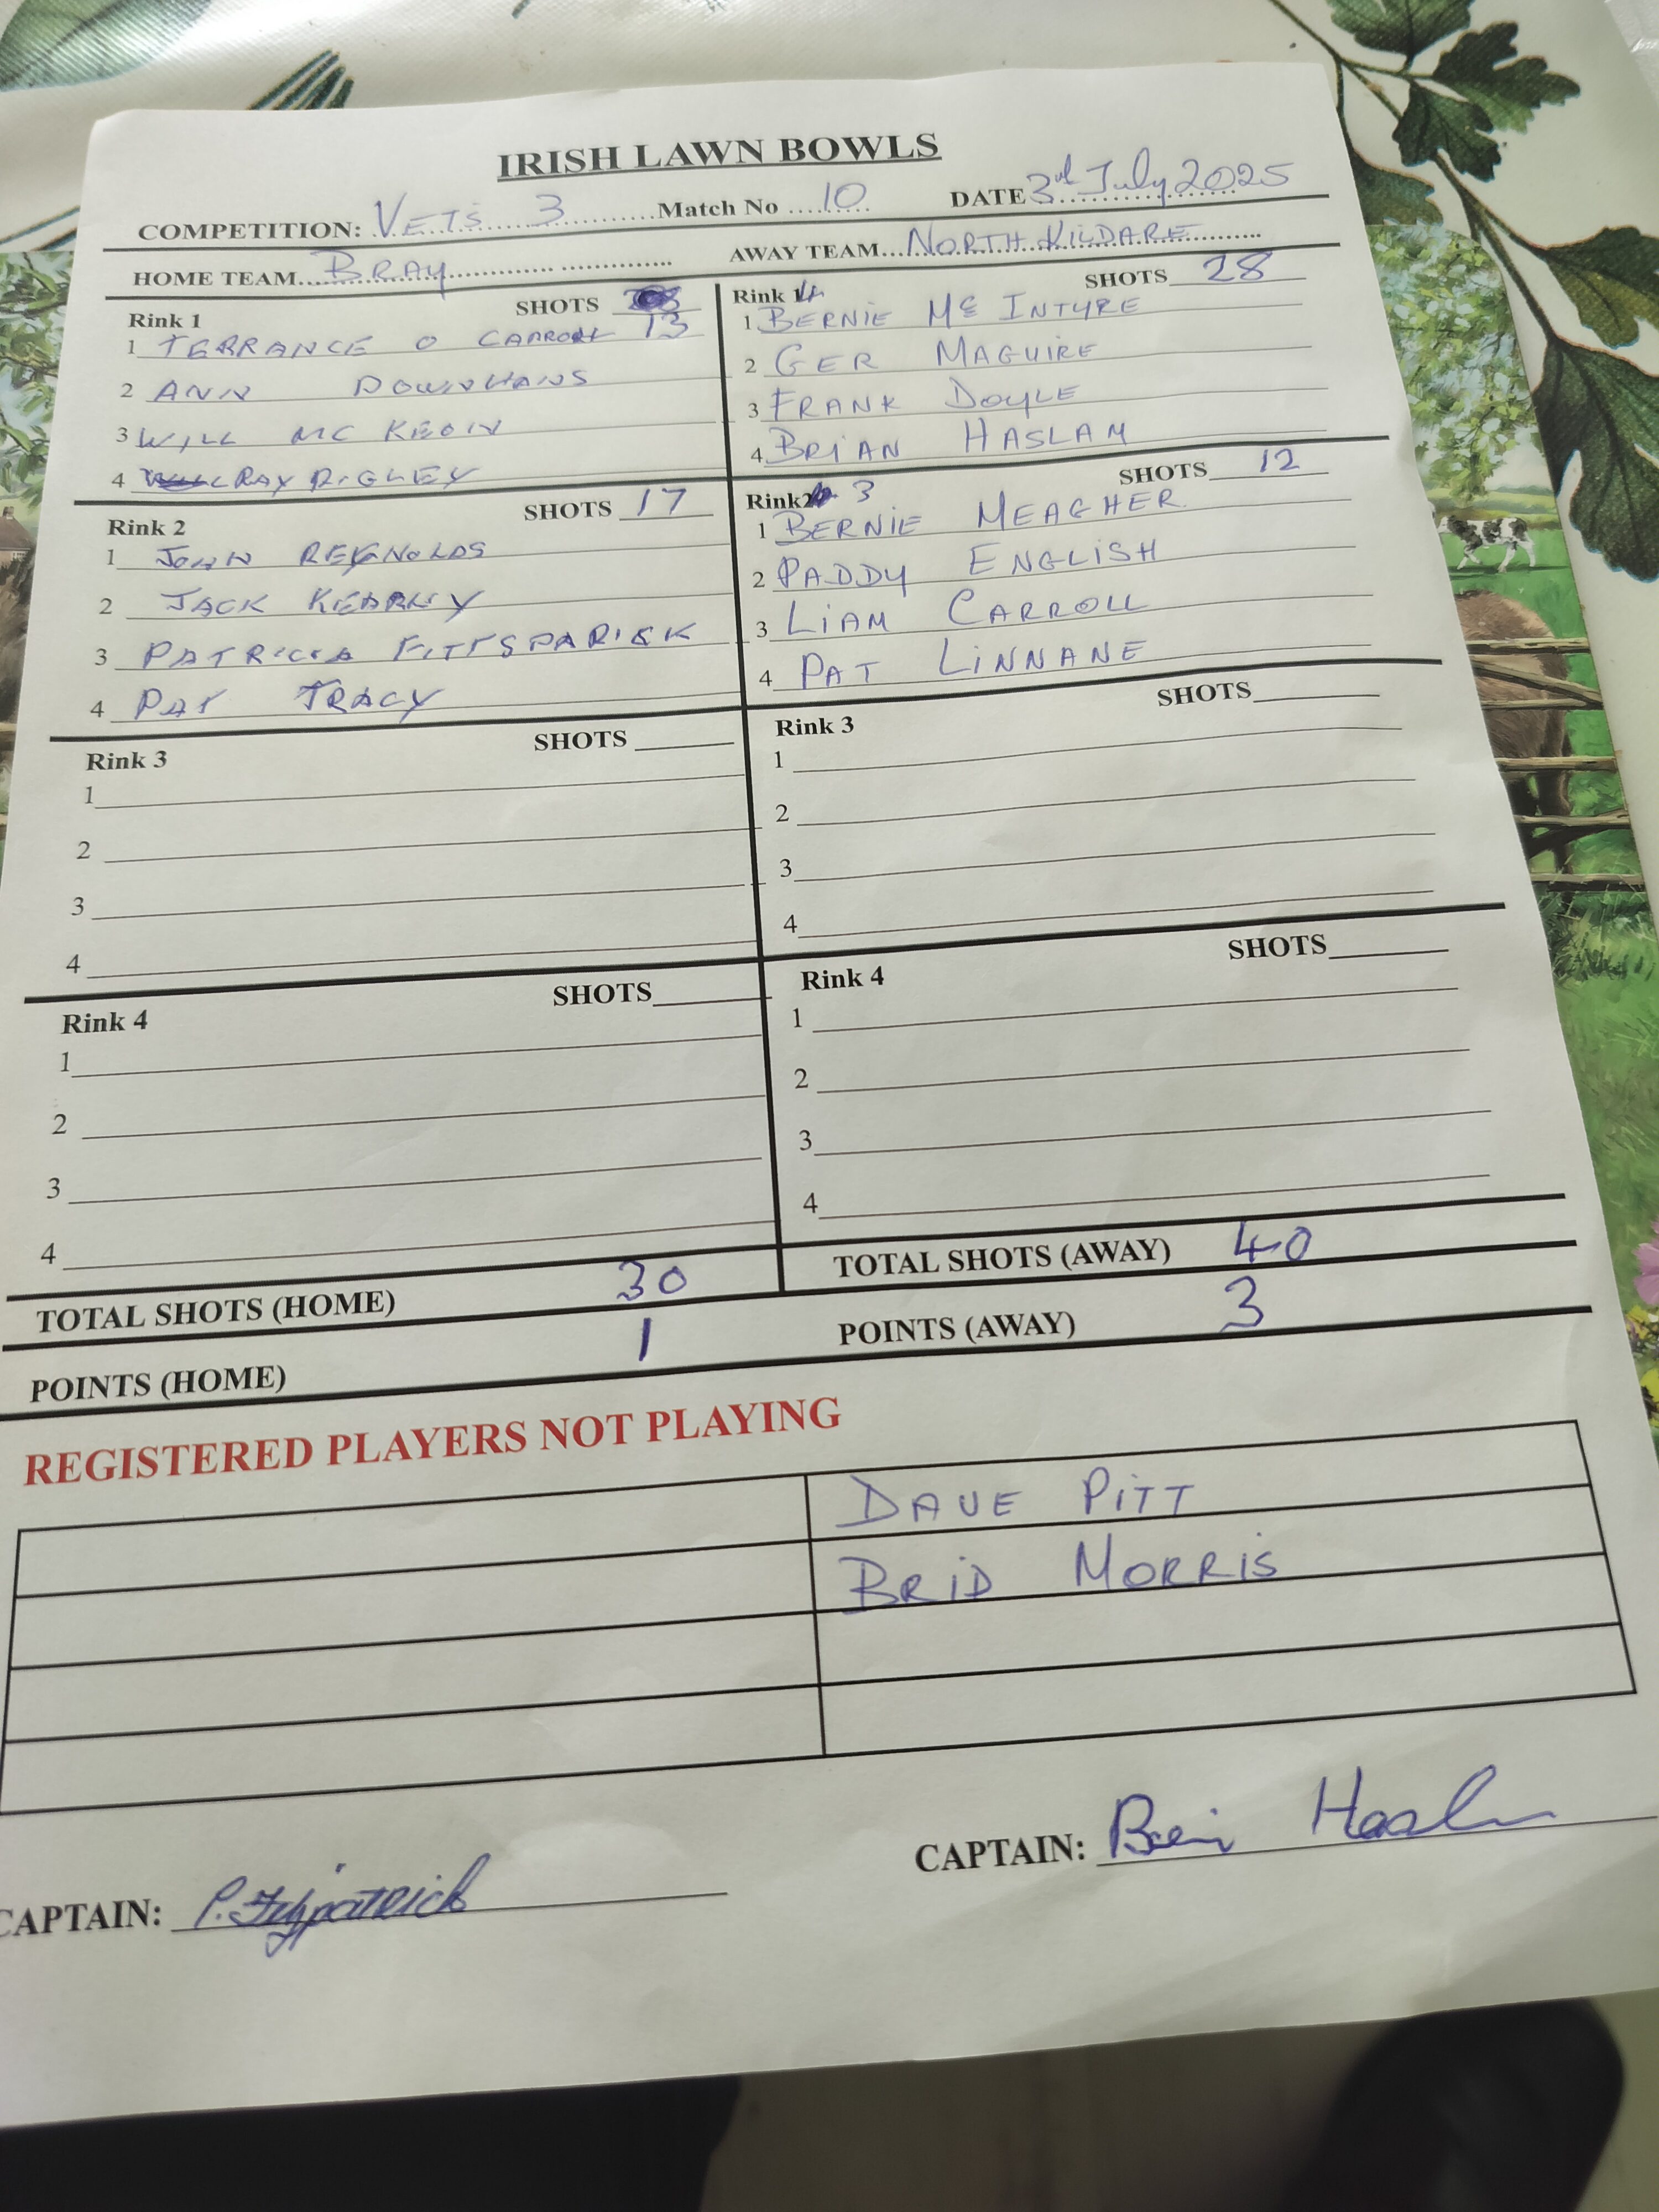 IRISH LAWN BOWLS
COMPETITION: VETS 3 Match No 10 DATE 3rd July 2025
HOME TEAM BRAY AWAY TEAM NORTH KILDARE
Rink 1 SHOTS 13
1 TERRANCE O CARROLL
2 ANN DOWNHANS
3 WILL MC KEOIN
4 RAY RIGLEY
Rink 1 4 SHOTS 28
1 BERNIE Mc INTYRE
2 GER MAGUIRE
3 FRANK DOYLE
4 BRIAN HASLAM
Rink 2 SHOTS 17
1 JOHN REYNOLDS
2 JACK KEARNY
3 PATRICIA FITTSPARICK
4 PAT TRACY
Rink 2 3 SHOTS 12
1 BERNIE MEAGHER
2 PADDY ENGLISH
3 LIAM CARROLL
4 PAT LINNANE
Rink 3 SHOTS
1
2
3
4
Rink 3 SHOTS
1
2
3
4
Rink 4 SHOTS
1
2
3
4
Rink 4 SHOTS
1
2
3
4
TOTAL SHOTS (HOME) 30 TOTAL SHOTS (AWAY) 40
POINTS (HOME) 1 POINTS (AWAY) 3
REGISTERED PLAYERS NOT PLAYING
DAVE PITT
BRID MORRIS
CAPTAIN: P. Fitzpatrick CAPTAIN: Brian Haslam